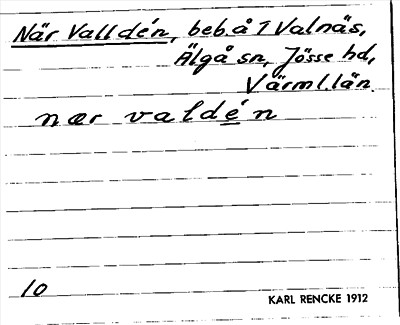 När Valldén, beb. å 1 Valnäs,
Älgå sn, Jösse hd,
Värml. län.
nær valdén
10
KARL RENCKE 1912